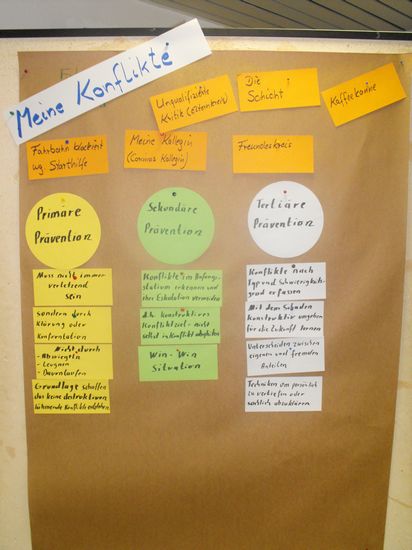 Meine Konflikte
Unqualifizierte
Kritik (Elternkreis)
Die
Schicht
Kaffeekanne
Fahrbahn blockiert
wg. Starthilfe
Meine Kollegin
Kollegin)
Freundeskreis
Primäre
Prävention
Sekundäre
Prävention
Tertiäre
Prävention
Muss nicht immer
verletzend
sein
Sondern durch
Klärung oder
Konfrontation
Nicht durch
- Abwiegeln
- Leugnen
- Davonlaufen
Grundlage schaffen
das keine destruktiven
Konflikte entstehen
Konflikte im Anfangs-
stadium erkennen und
ihre Eskalation vermeiden
d.h. konstruktives
Konfliktziel - nicht
selbst in Konflikt abgleiten
Win-Win
Situation
Konflikte nach
Typ und Schwierigkeits-
grad erfassen
Mit dem Schaden
Konstruktiv umgehen
für die Zukunft lernen
Unterscheiden zwischen
eigenen und fremden
Anteilen
Techniken um persönlich
zu vertiefen oder
sachlich abzuklären